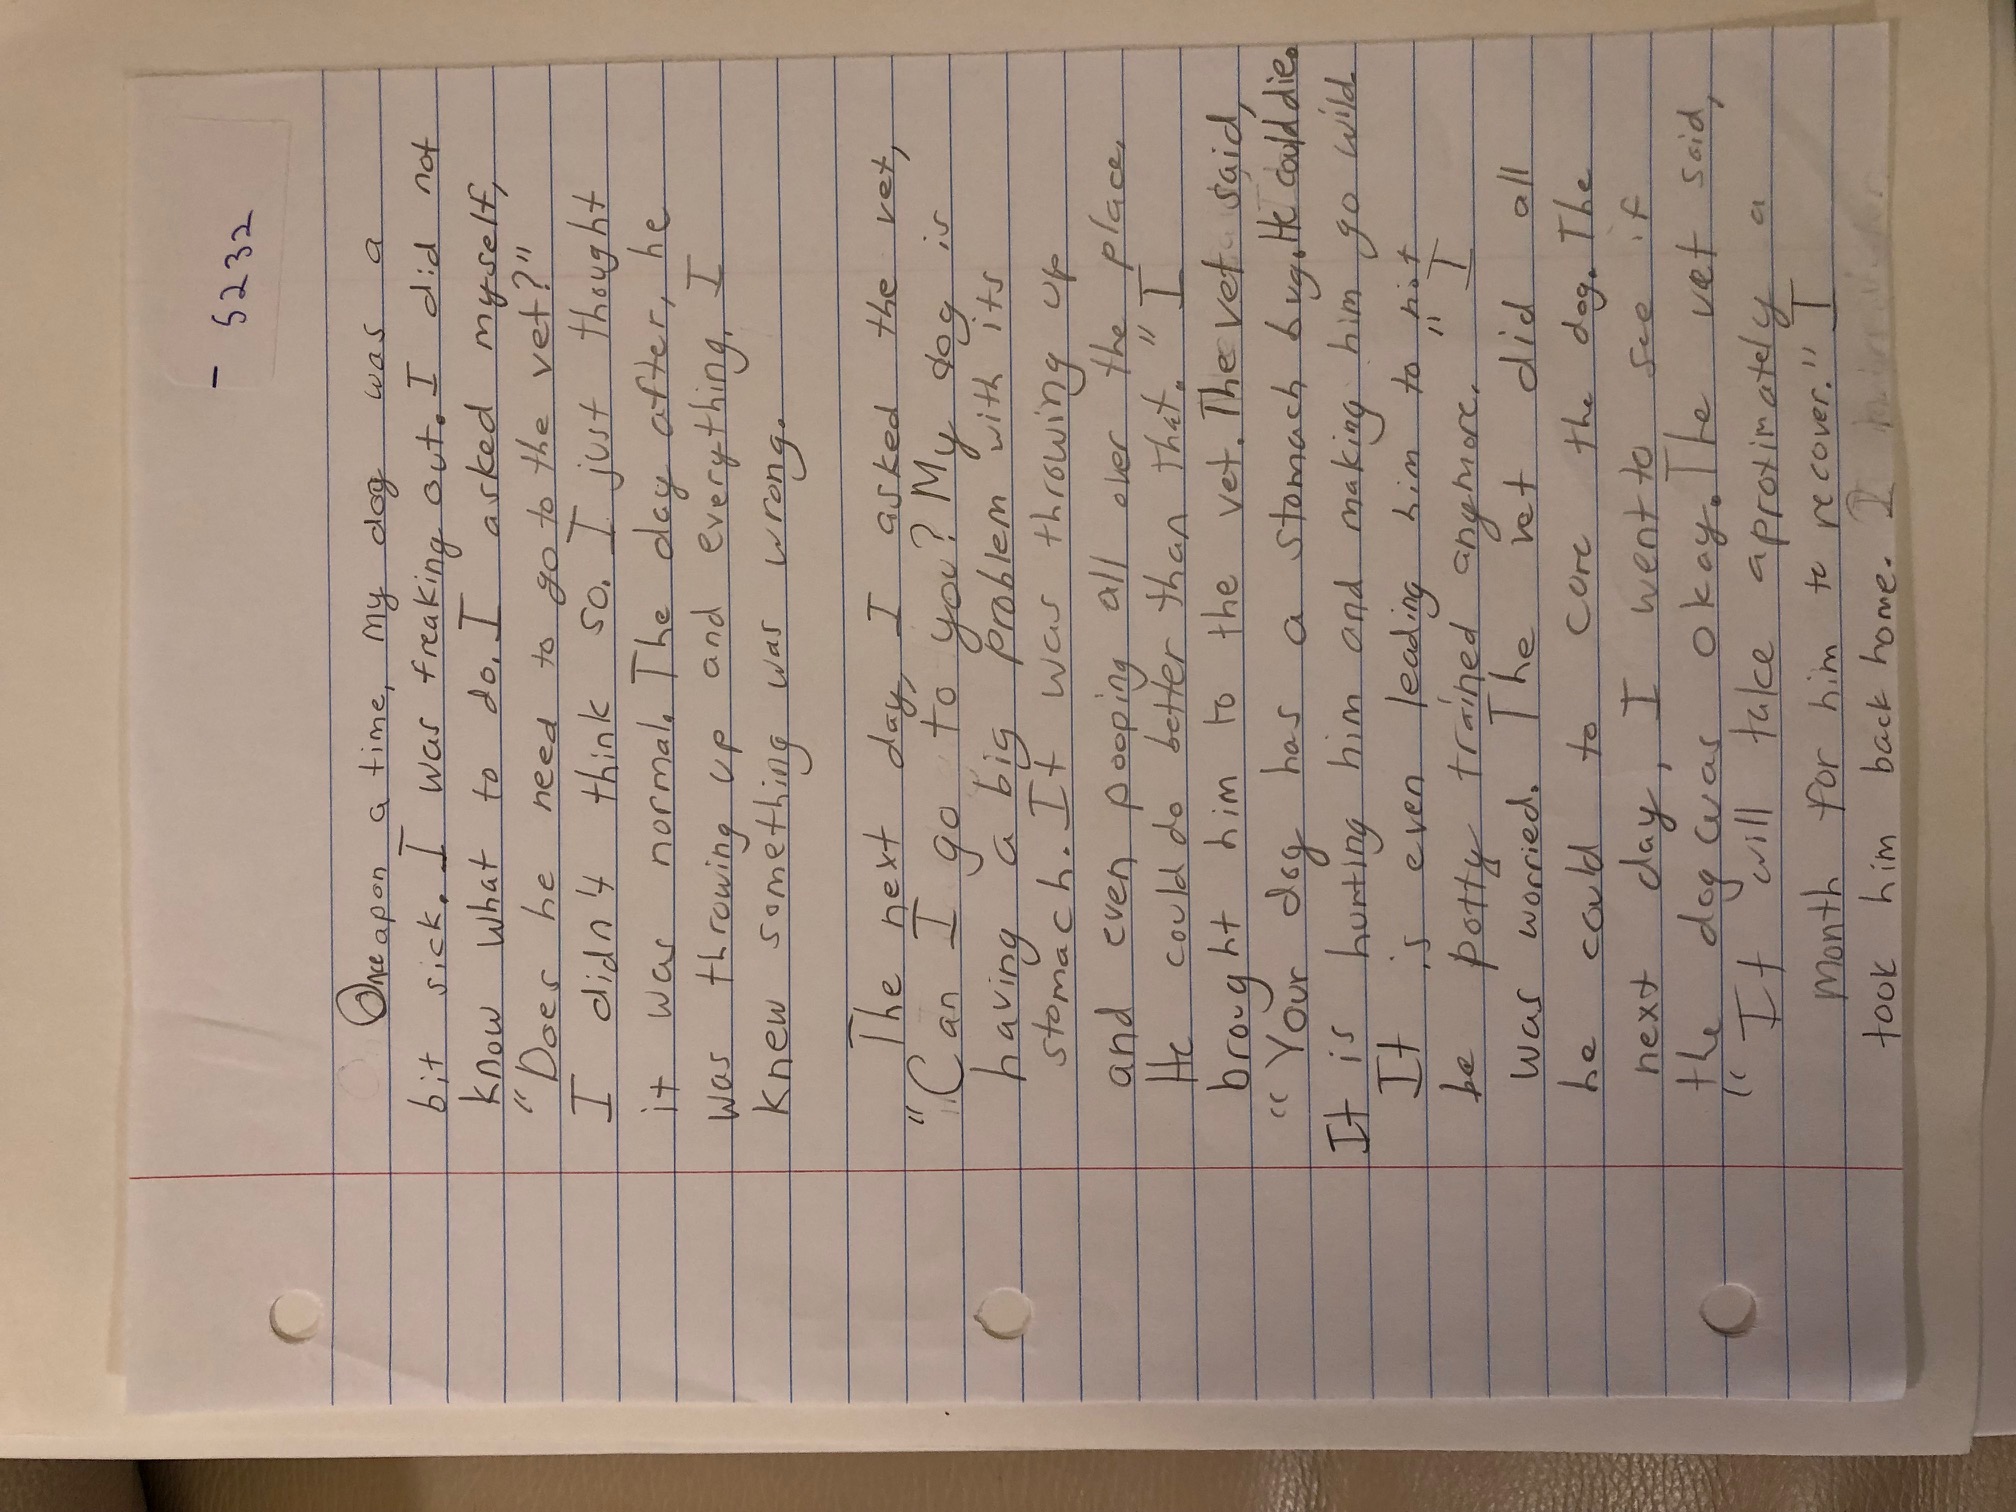 - 5232
Once apon a time, my dog was a
bit sick. I was freaking out. I did not
know what to do. I asked myself,
"Does he need to go to the vet?"
I didn't think so. I just thought
it was normal. The day after, he
was throwing up and everything. I
knew something was wrong.
The next day, I asked the vet,
"Can I go to you? My dog is
having a big problem with its
stomach. It was throwing up
and even pooping all over the place.
He could do better than that." I
brought him to the vet. The vet said,
"Your dog has a stomach bug. He could die.
It is hurting him and making him go wild
It is even leading him to not
be potty trained anymore." I
was worried. The vet did all
he could to cure the dog. The
next day, I went to see if
the dog was okay. The vet said,
"It will take aproximately a
month for him to recover." I
took him back home. I